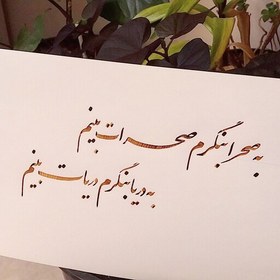 به صحرا بنگرم صحرات بینم
به دریا بنگرم دریات بینم